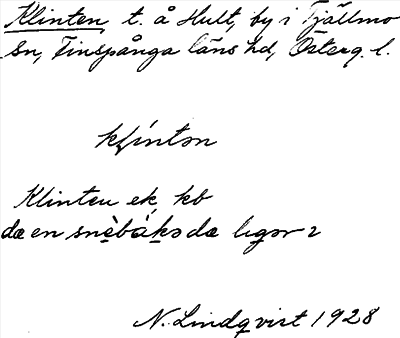 Klinten t. å Hult, by i Tjällmo
Sn, Finspånga läns hd, Österg. l.
klíntən
Klinten ek, kb
dæ en snèbákə dæ ligər 2
N. Lindqvist 1928